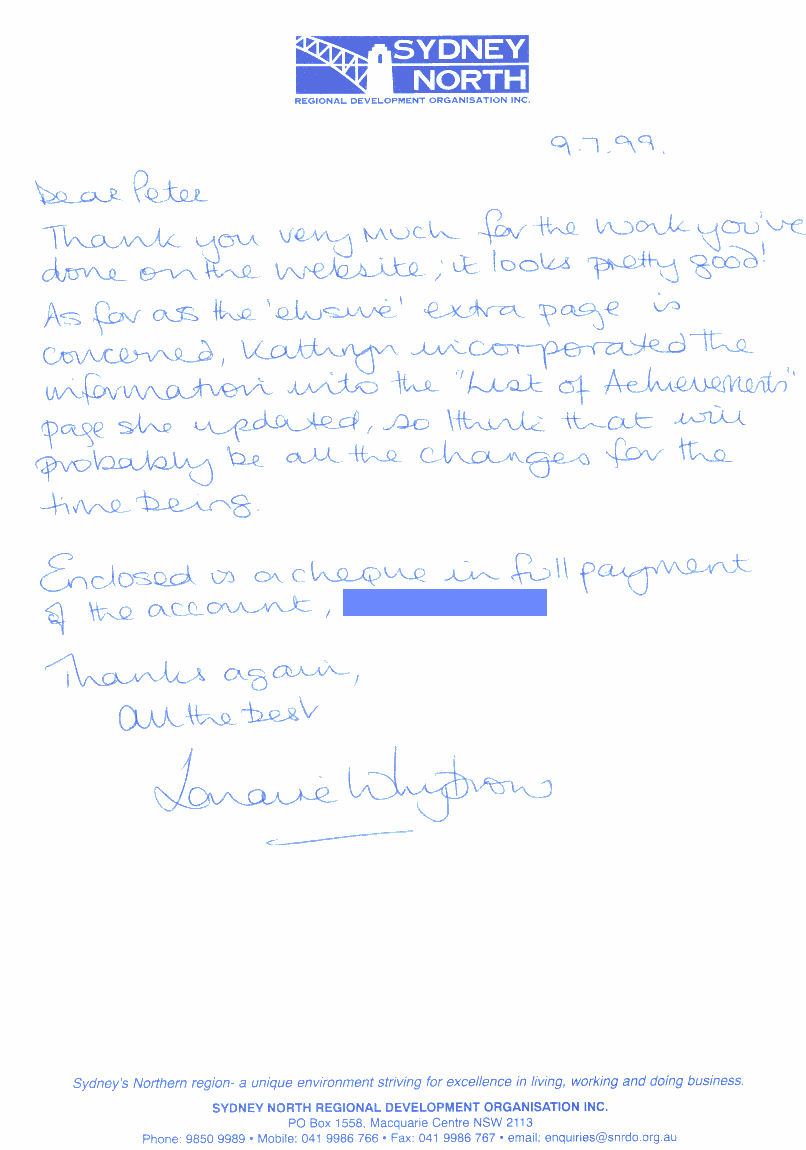 SYDNEY
NORTH
REGIONAL DEVELOPMENT ORGANISATION INC.
9.7.99.
Dear Peter
Thank you very much for the work you've
done on the website; it looks pretty good!
As far as the 'elusive' extra page is
concerned, Kathryn incorporated the
information into the "List of Achievements"
page she updated, so I think that will
probably be all the changes for the
time being.
Enclosed is a cheque in full payment
of the account,
Thanks again,
All the best
Lorraine
Sydney's Northern region- a unique environment striving for excellence in living, working and doing business.
SYDNEY NORTH REGIONAL DEVELOPMENT ORGANISATION INC.
PO Box 1558, Macquarie Centre NSW 2113
Phone: 9850 9989 • Mobile: 041 9986 766 • Fax: 041 9986 767 • email: enquiries@snrdo.org.au